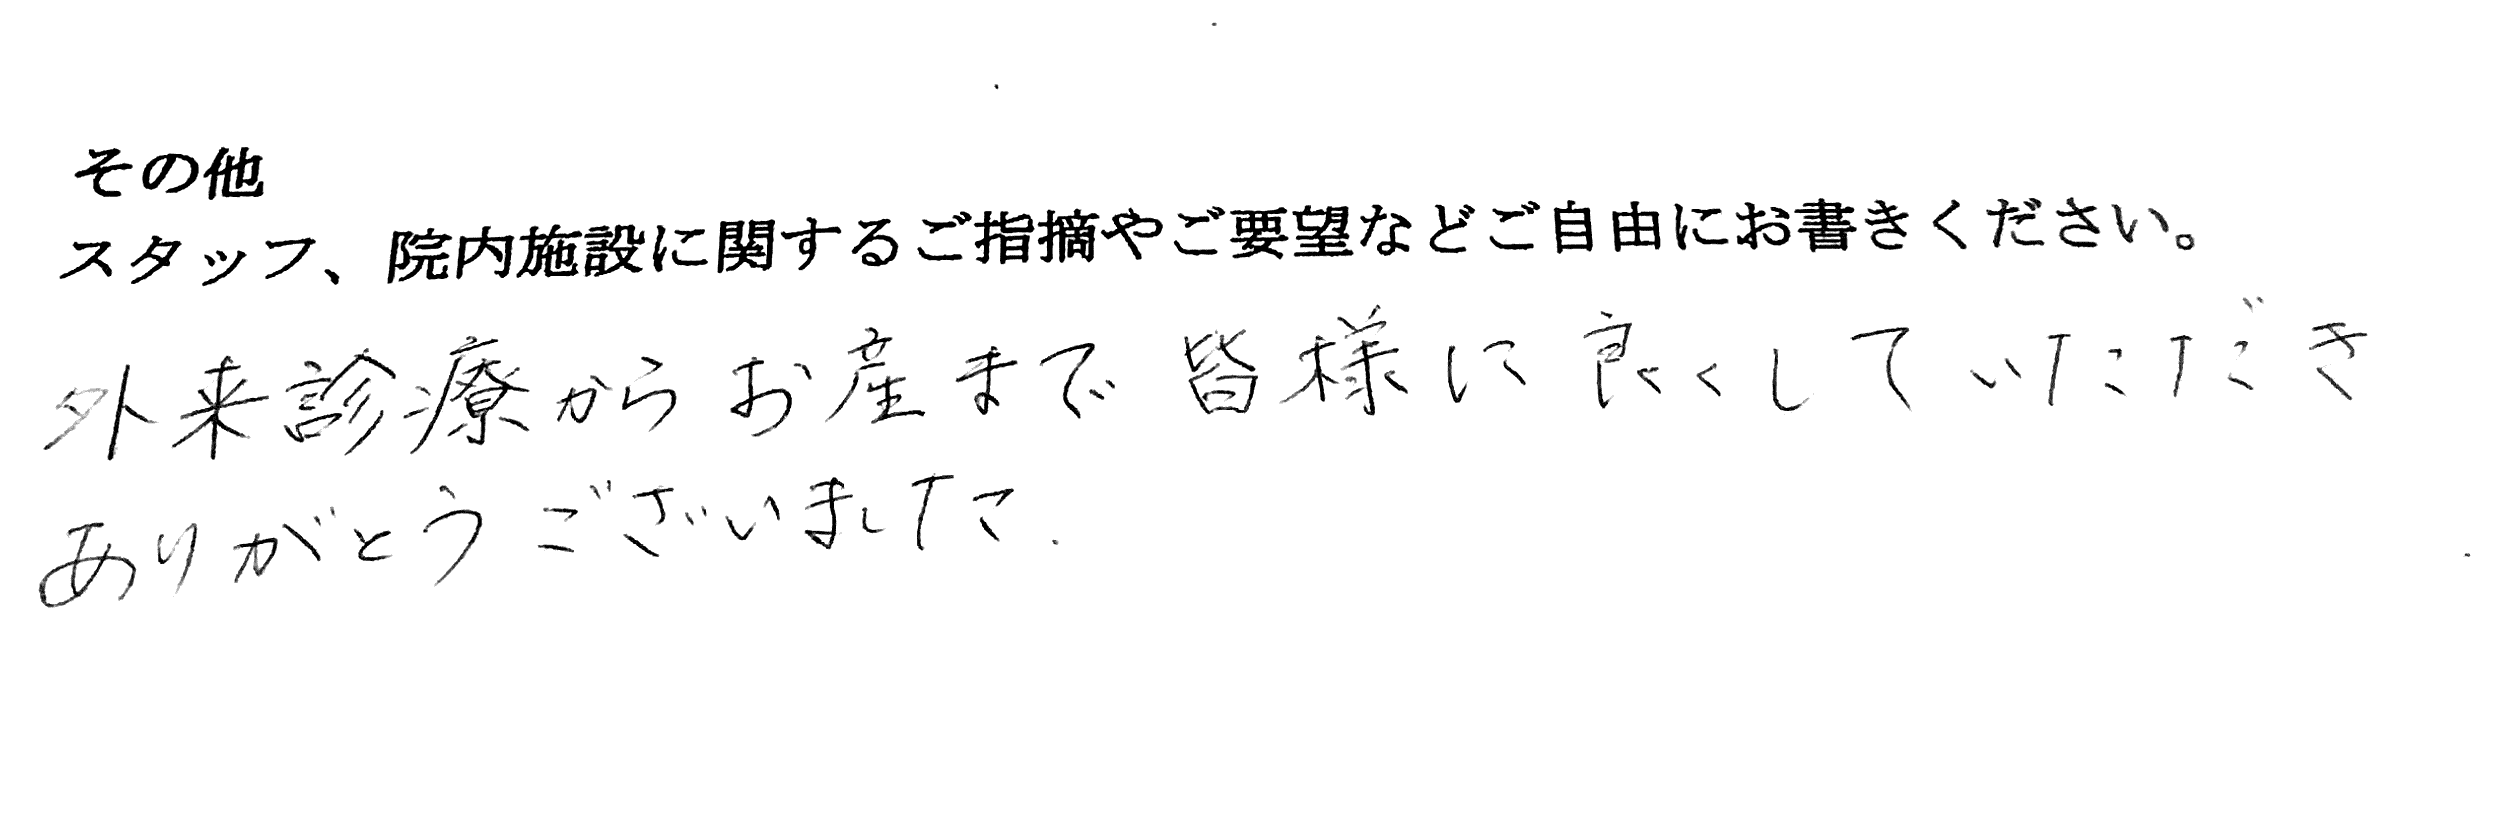 その他
スタッフ、院内施設に関するご指摘やご要望などご自由にお書きください。
外来診療からお産まで皆様に良くしていただき
ありがとうございました.